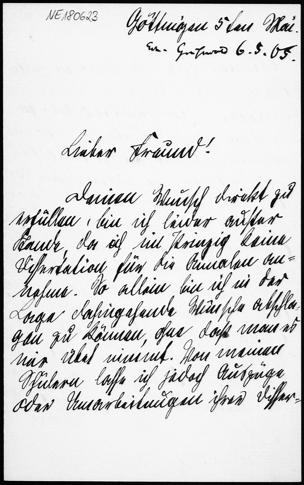 NE180623
Göttingen 5ten Mai.
6.5.05.
Lieber Freund!
Deinen Wunsch direkt zu
erfüllen, bin ich leider außer
Stande, da ich im Prinzip keine
Dissertation für die Annalen an-
nehme. So allein bin ich in der
Lage dahingehende Wünsche abschla-
gen zu können, ohne daß man es
mir übel nimmt. Von meinen
Schülern lasse ich jedoch Auszüge
oder Umarbeitungen ihrer Disser-